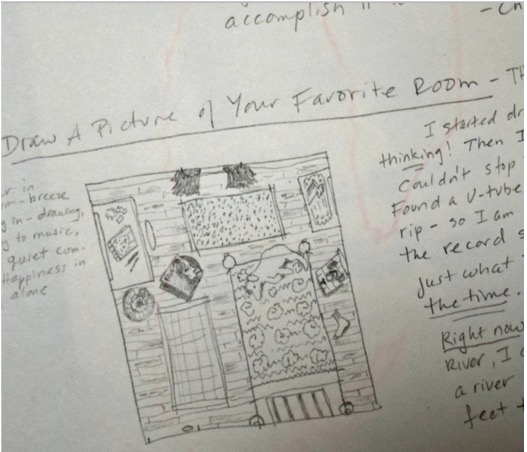 accomplish it
Draw A Picture of Your Favorite Room - Th
in
breeze
in - drawing,
to music,
quiet com-
Happiness in
alone
I started dr
thinking! Then I
Couldn't stop
Found a U-tube
rip - so I am
the record s
Just what
the time.
Right now
River, I
a river
feet